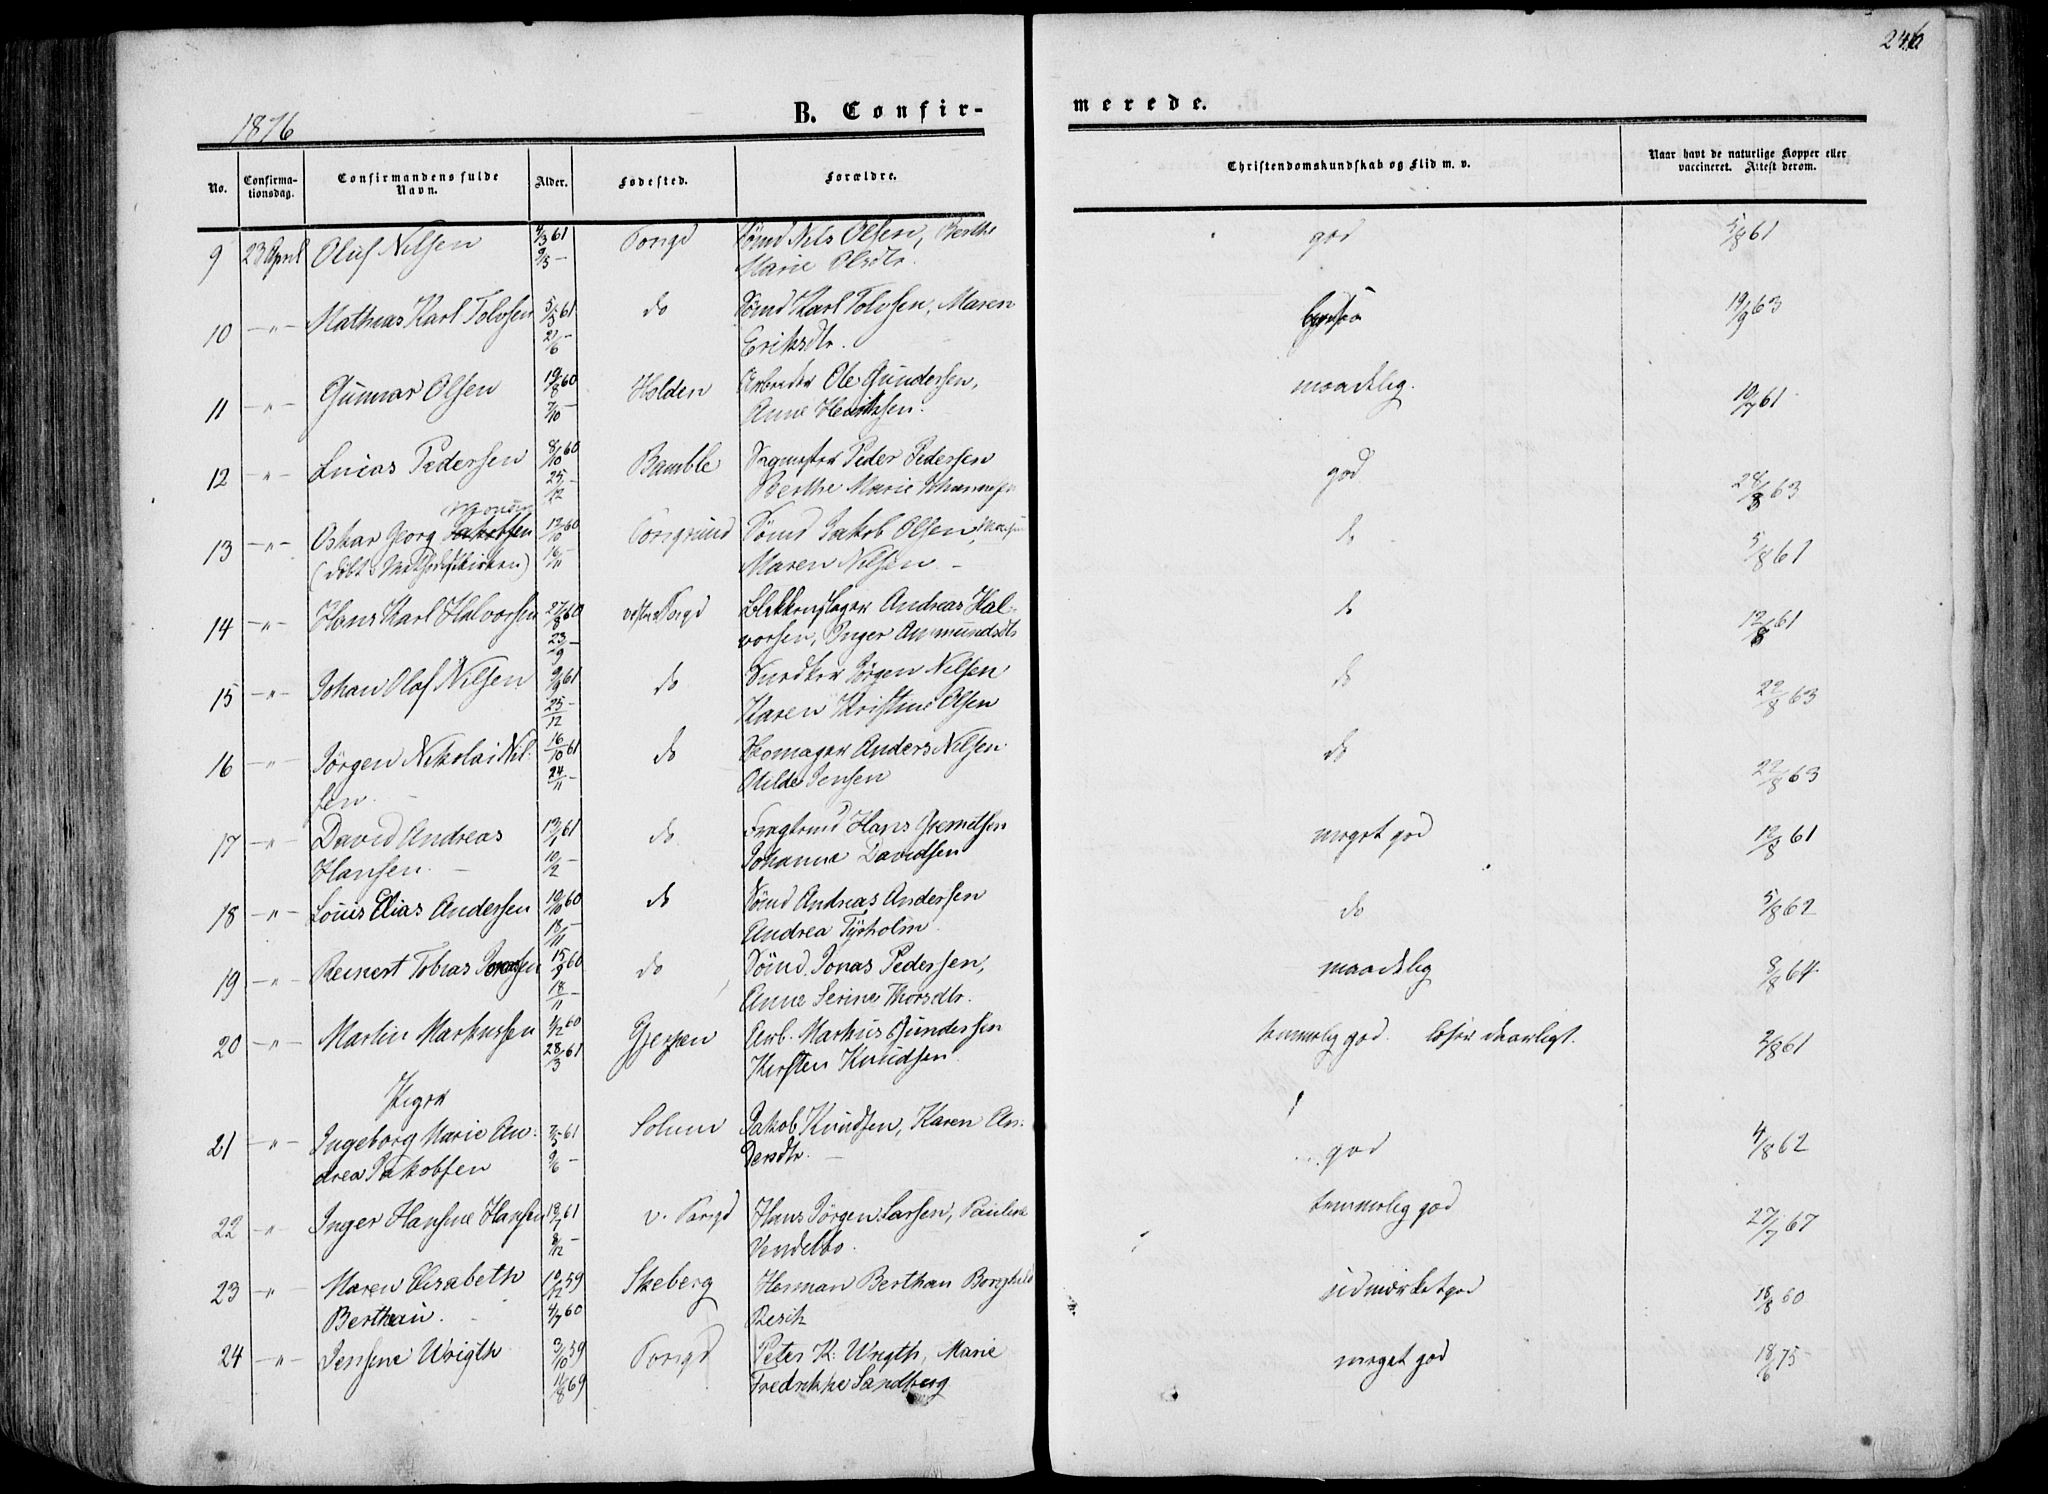 246
1876
B. Confir-
merede.
No.
Confirma-
tionsdag.
Confirmandens fulde
Navn.
Alder.
Fødested.
Forældre.
Christendomskundskab og Flid m. v.
Naar havt de naturlige Kopper eller
vaccineret. Attest derom.
9 23 April Oluf Nilsen 4/3 61 Porsgd Sømd Nils Olsen, Berthe god 5/8 61
9/5 — Marie Olsdtr.
10 —"— Mathias Karl Tolvsen 5/5 61 do Sømd Karl Tolvsen, Maren 19/9 63
2/6 — Eriksdtr.
11 —"— Gunnar Olsen 19/8 60 Holden Arbeider Ole Gundersen, maadelig. 10/7 61
7/10 — Anne Henriksen.
12 —"— Lucas Pedersen 8/10 60 Bamble Sagmester Peder Pedersen god 28/8 63
25/12 — Berthe Marie Johannesen
13 —"— Oskar Georg Jakobsen 12/10 60 Porsgrund Sømd Jakob Olsen do 5/8 61
(døbt i Methodistkirken) 16/11 — Maren Nilsen —
14 —"— Hans Karl Halvorsen 27/8 60 vestre Porsgd Blikkenslager Andreas Hal- do 12/8 61
23/9 — vorsen, Inger Anmundsdtr
15 —"— Johan Olaf Nilsen 9/9 61 do Snedker Jørgen Nilsen do 22/8 63
25/12 — Karen Kristine Olsen
16 —"— Jørgen Nikolai Nil- 16/10 61 do Skomager Anders Nilsen do 22/8 63
sen. 24/11 — Otilde Jensen
17 —"— David Andreas 13/1 61 do Fragtmd Hans Gremetsen meget god 12/8 61
Hansen. — 10/2 — Johanne Davidsen
18 —"— Louis Elias Andersen 19/10 60 do Sømd Andreas Andersen do 5/8 62
18/11 — Andrea Tyrholm.
19 —"— Reinert Tobias Jonassen 15/9 60 do Sømd. Jonas Pedersen, maadelig 8/8 64
18/11 — Anne Serine Thorsdtr.
20 —"— Martin Markussen 4/12 60 Gjerpen Arb. Markus Gundersen temmelig god. læser daarligt. 2/8 61
28/3 61 Kirsten Knudsen
Piger
21 —"— Ingeborg Marie An- 7/5 61 Solum Jakob Knudsen, Karen An- god 4/8 62
drea Jakobsen 9/6 — dersdtr. —
22 —"— Inger Hansine Hansen 18/7 61 v. Porsgd Hans Jørgen Larsen, Pauline temmelig god 27/7 67
8/12 — Vendelbo.
23 —"— Maren Elisabeth 10/12 59 Skeberg Herman Berthau Borghild udmærket god 18/8 60
Berthau. 4/7 60 Resch
24 —"— Jensine Wrigth 3/10 59 Porsgd Peter K. Wrigth, Marie meget god 18/6 75
11/8 69 Fredrikke Sandberg